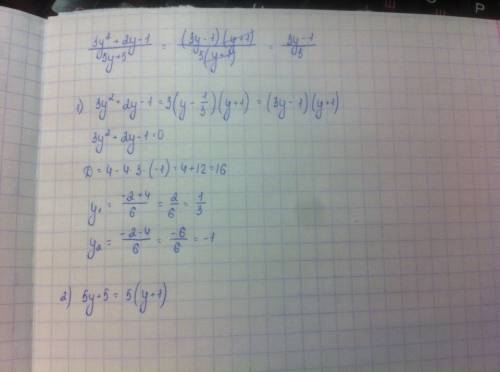 (3y² + 2y - 1)/(5y + 5) = ((3y - 1)(y + 1))/(5(y + 1)) = (3y - 1)/5
1) 3y² + 2y - 1 = 3(y - 1/3)(y + 1) = (3y - 1)(y + 1)
3y² + 2y - 1 = 0
D = 4 - 4·3·(-1) = 4 + 12 = 16
y₁ = (-2 + 4)/6 = 2/6 = 1/3
y₂ = (-2 - 4)/6 = -6/6 = -1
2) 5y + 5 = 5(y + 1)